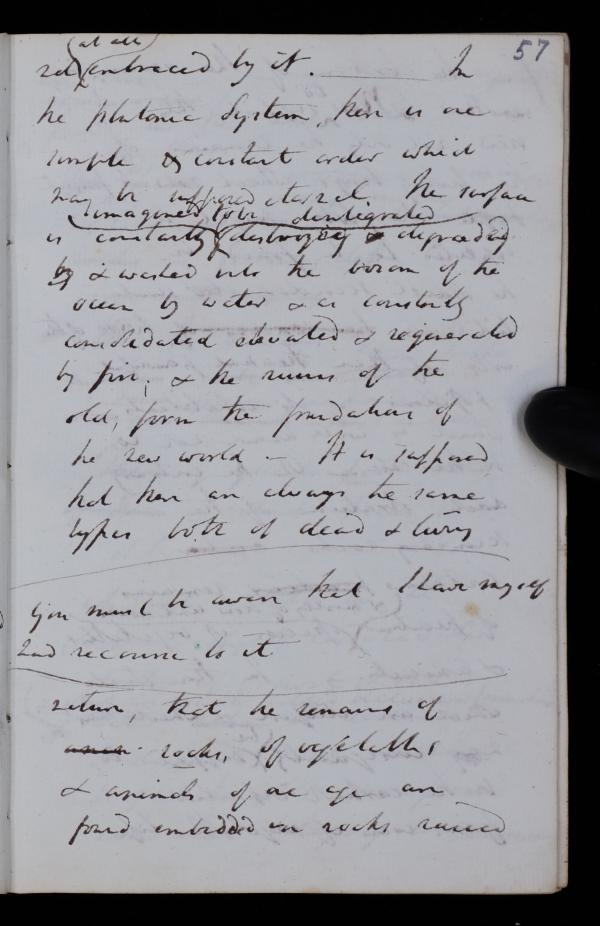 57
(at all)
not embraced by it. ——— In
the plutonic System, there is one
simple & constant order which
may be supposed eternal. The surface
imagined to be disintegrated
is constantly destroying & degrading
by & washed into the bosom of the
ocean by water & as constantly
consolidated elevated & regenerated
by fire; & the ruins of the
old, form the foundations of
the new world – It is supposed
that there are always the same
types both of dead & living
You must be aware that I have myself
had recourse to it
nature, that the remains of
rocks, of vegetables
& animals of one age are
found embedded in rocks raised